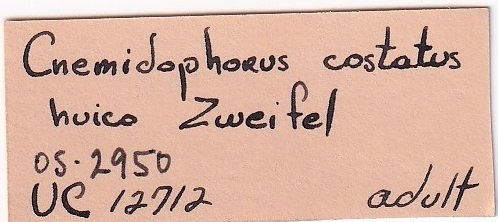 Cnemidophorus costatus
huico Zweifel
OS-2950
UC 12712 adult